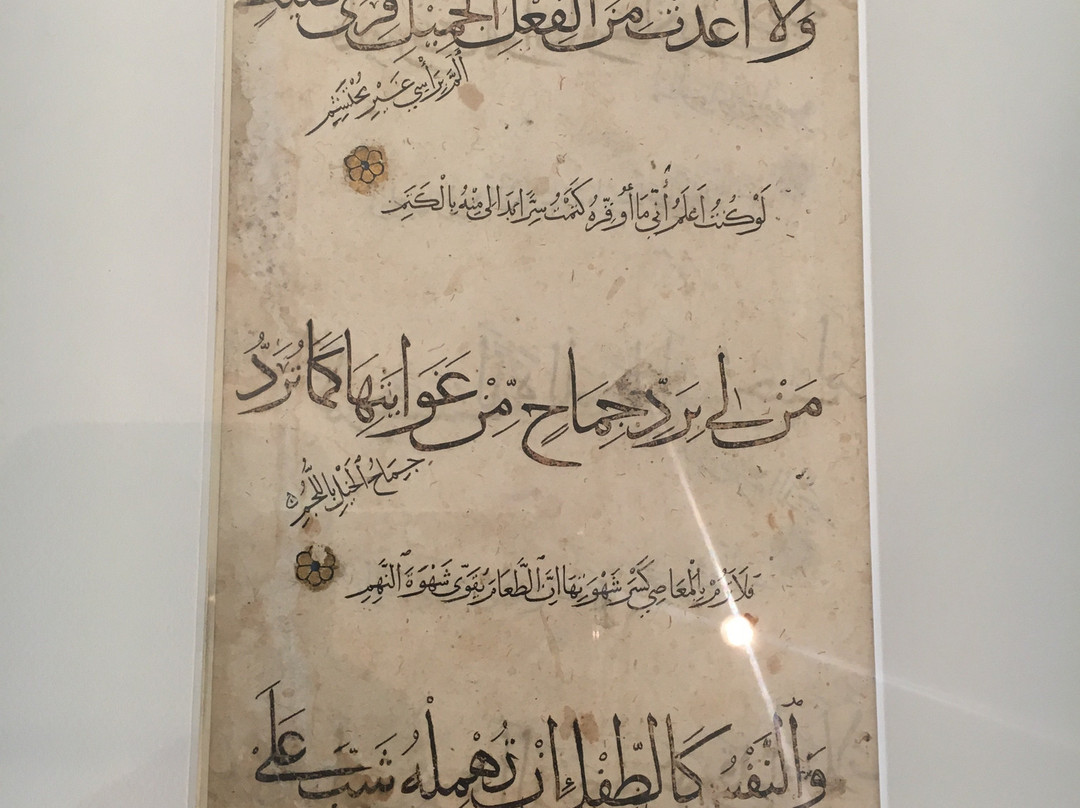 وَلَا أَعَدَّتْ مِنَ الْفِعْلِ الْجَمِيلِ قِرَى
أَلَمَّ بِرَأْسِي غَيْرَ مُحْتَشِمِ
لَوْ كُنْتُ أَعْلَمُ أَنِّي مَا أُوَقِّرُهُ كَتَمْتُ سِرًّا بَدَا لِي مِنْهُ بِالْكَتَمِ
مَنْ لِي بِرَدِّ جِمَاحٍ مِّنْ غَوَايَتِهَا كَمَا تُرَدُّ
جِمَاحُ الْخَيْلِ بِاللُّجُمِ
فَلَا تَرُمْ بِالْمَعَاصِي كَسْرَ شَهْوَتِهَا إِنَّ الطَّعَامَ يُقَوِّي شَهْوَةَ النَّهِمِ
وَالنَّفْسُ كَالطِّفْلِ إِنْ تُهْمِلْهُ شَبَّ عَلَى